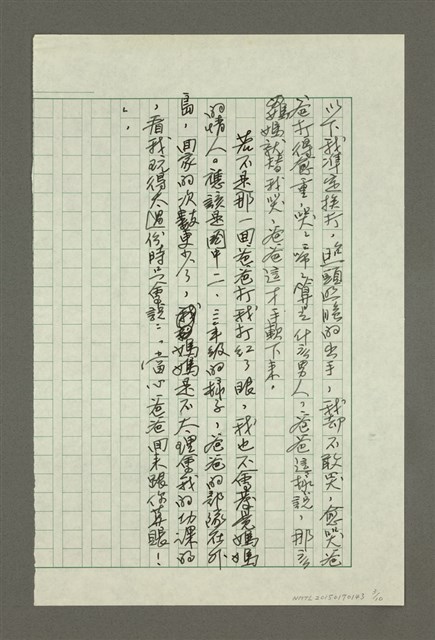 以下我準定挨打，照頭照臉的出手，我卻不敢哭，愈哭爸
爸打得愈重，哭哭啼啼算是什麼男人，爸爸這樣說，那麼
媽媽就替我哭，爸爸這才手軟下來。
若不是那一回爸爸打我打紅了眼，我也不會發覺媽媽
的情人。應該是國中二、三年級的樣子，爸爸的部隊在外
島，回家的次數更少了，媽媽是不大理會我的功課的
，看我玩得太過份時只會說：「當心爸爸回來跟你算賬！
」。
NMTL20150190183
3/10